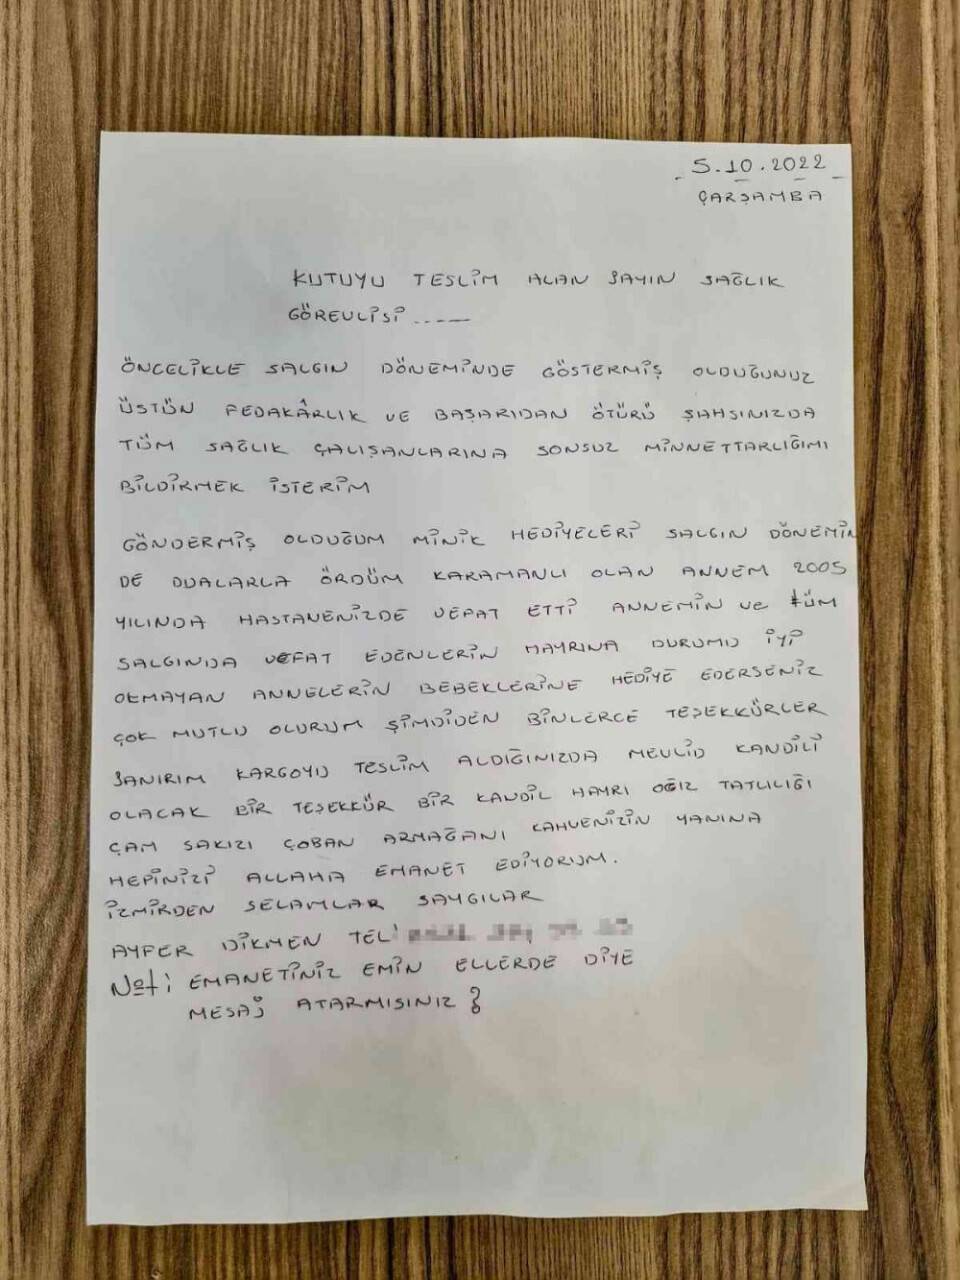 5.10.2022
ÇARŞAMBA
KUTUYU TESLİM ALAN SAYIN SAĞLIK
GÖREVLİSİ .....
ÖNCELİKLE SALGIN DÖNEMİNDE GÖSTERMİŞ OLDUĞUNUZ
ÜSTÜN FEDAKÂRLIK VE BAŞARIDAN ÖTÜRÜ ŞAHSINIZDA
TÜM SAĞLIK ÇALIŞANLARINA SONSUZ MİNNETTARLIĞIMI
BİLDİRMEK İSTERİM
GÖNDERMİŞ OLDUĞUM MİNİK HEDİYELERİ SALGIN DÖNEMİN
DE DUALARLA ÖRDÜM KARAMANLI OLAN ANNEM 2005
YILINDA HASTANENİZDE VEFAT ETTİ ANNEMİN ve tÜM
SALGINDA VEFAT EDENLERİN HAYRINA DURUMU İYİ
OLMAYAN ANNELERİN BEBEKLERİNE HEDİYE EDERSENİZ
ÇOK MUTLU OLURUM ŞİMDİDEN BİNLERCE TEŞEKKÜRLER
SANIRIM KARGOYU TESLİM ALDIĞINIZDA MEVLİD KANDİLİ
OLACAK BİR TEŞEKKÜR BİR KANDİL HAYRI AĞIZ TATLILIĞI
ÇAM SAKIZI ÇOBAN ARMAĞANI KAHVENİZİN YANINA
HEPİNİZİ ALLAHA EMANET EDİYORUM.
İZMİRDEN SELAMLAR SAYGILAR
AYFER DİKMEN TEL:
Not: EMANETİNİZ EMİN ELLERDE DİYE
MESAJ ATARMISINIZ?